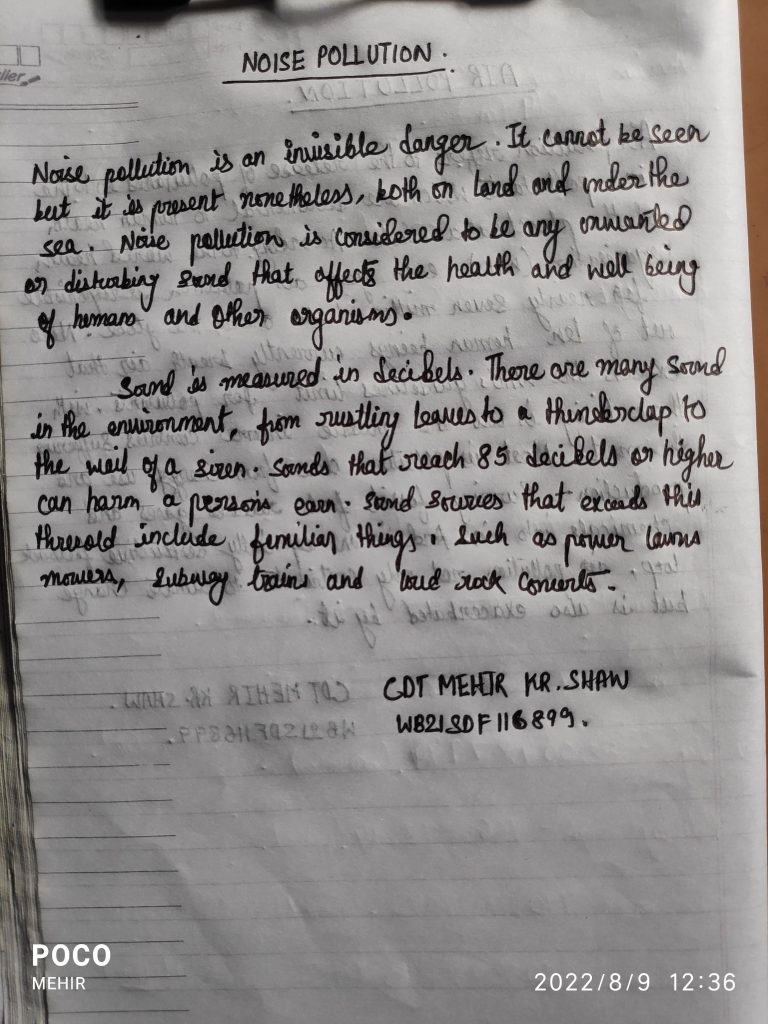 NOISE POLLUTION.
Noise pollution is an invisible danger. It cannot be seen
but it is present nonetheless, both on land and under the
sea. Noise pollution is considered to be any unwanted
or disturbing sound that affects the health and well being
of humans and other organisms.
Sound is measured in decibels. There are many sound
in the environment, from rustling leaves to a thunderclap to
the wail of a siren. Sounds that reach 85 decibels or higher
can harm a persons ears. Sound sources that exceeds this
thresold include familiar things. Such as power lawns
mowers, subway trains and loud rock concerts.
CDT MEHIR KR. SHAW
WB21SDF116899.
POCO
MEHIR
2022/8/9 12:36